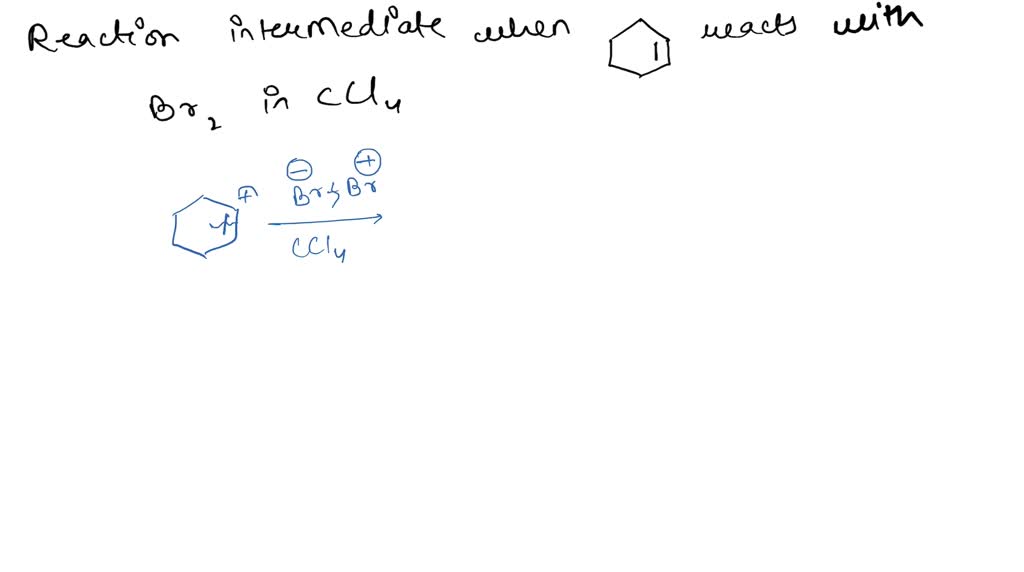 Reaction intermediate when reacts with
Br2 in CCl4
+ ⊖ ⊕
Br Br
CCl4